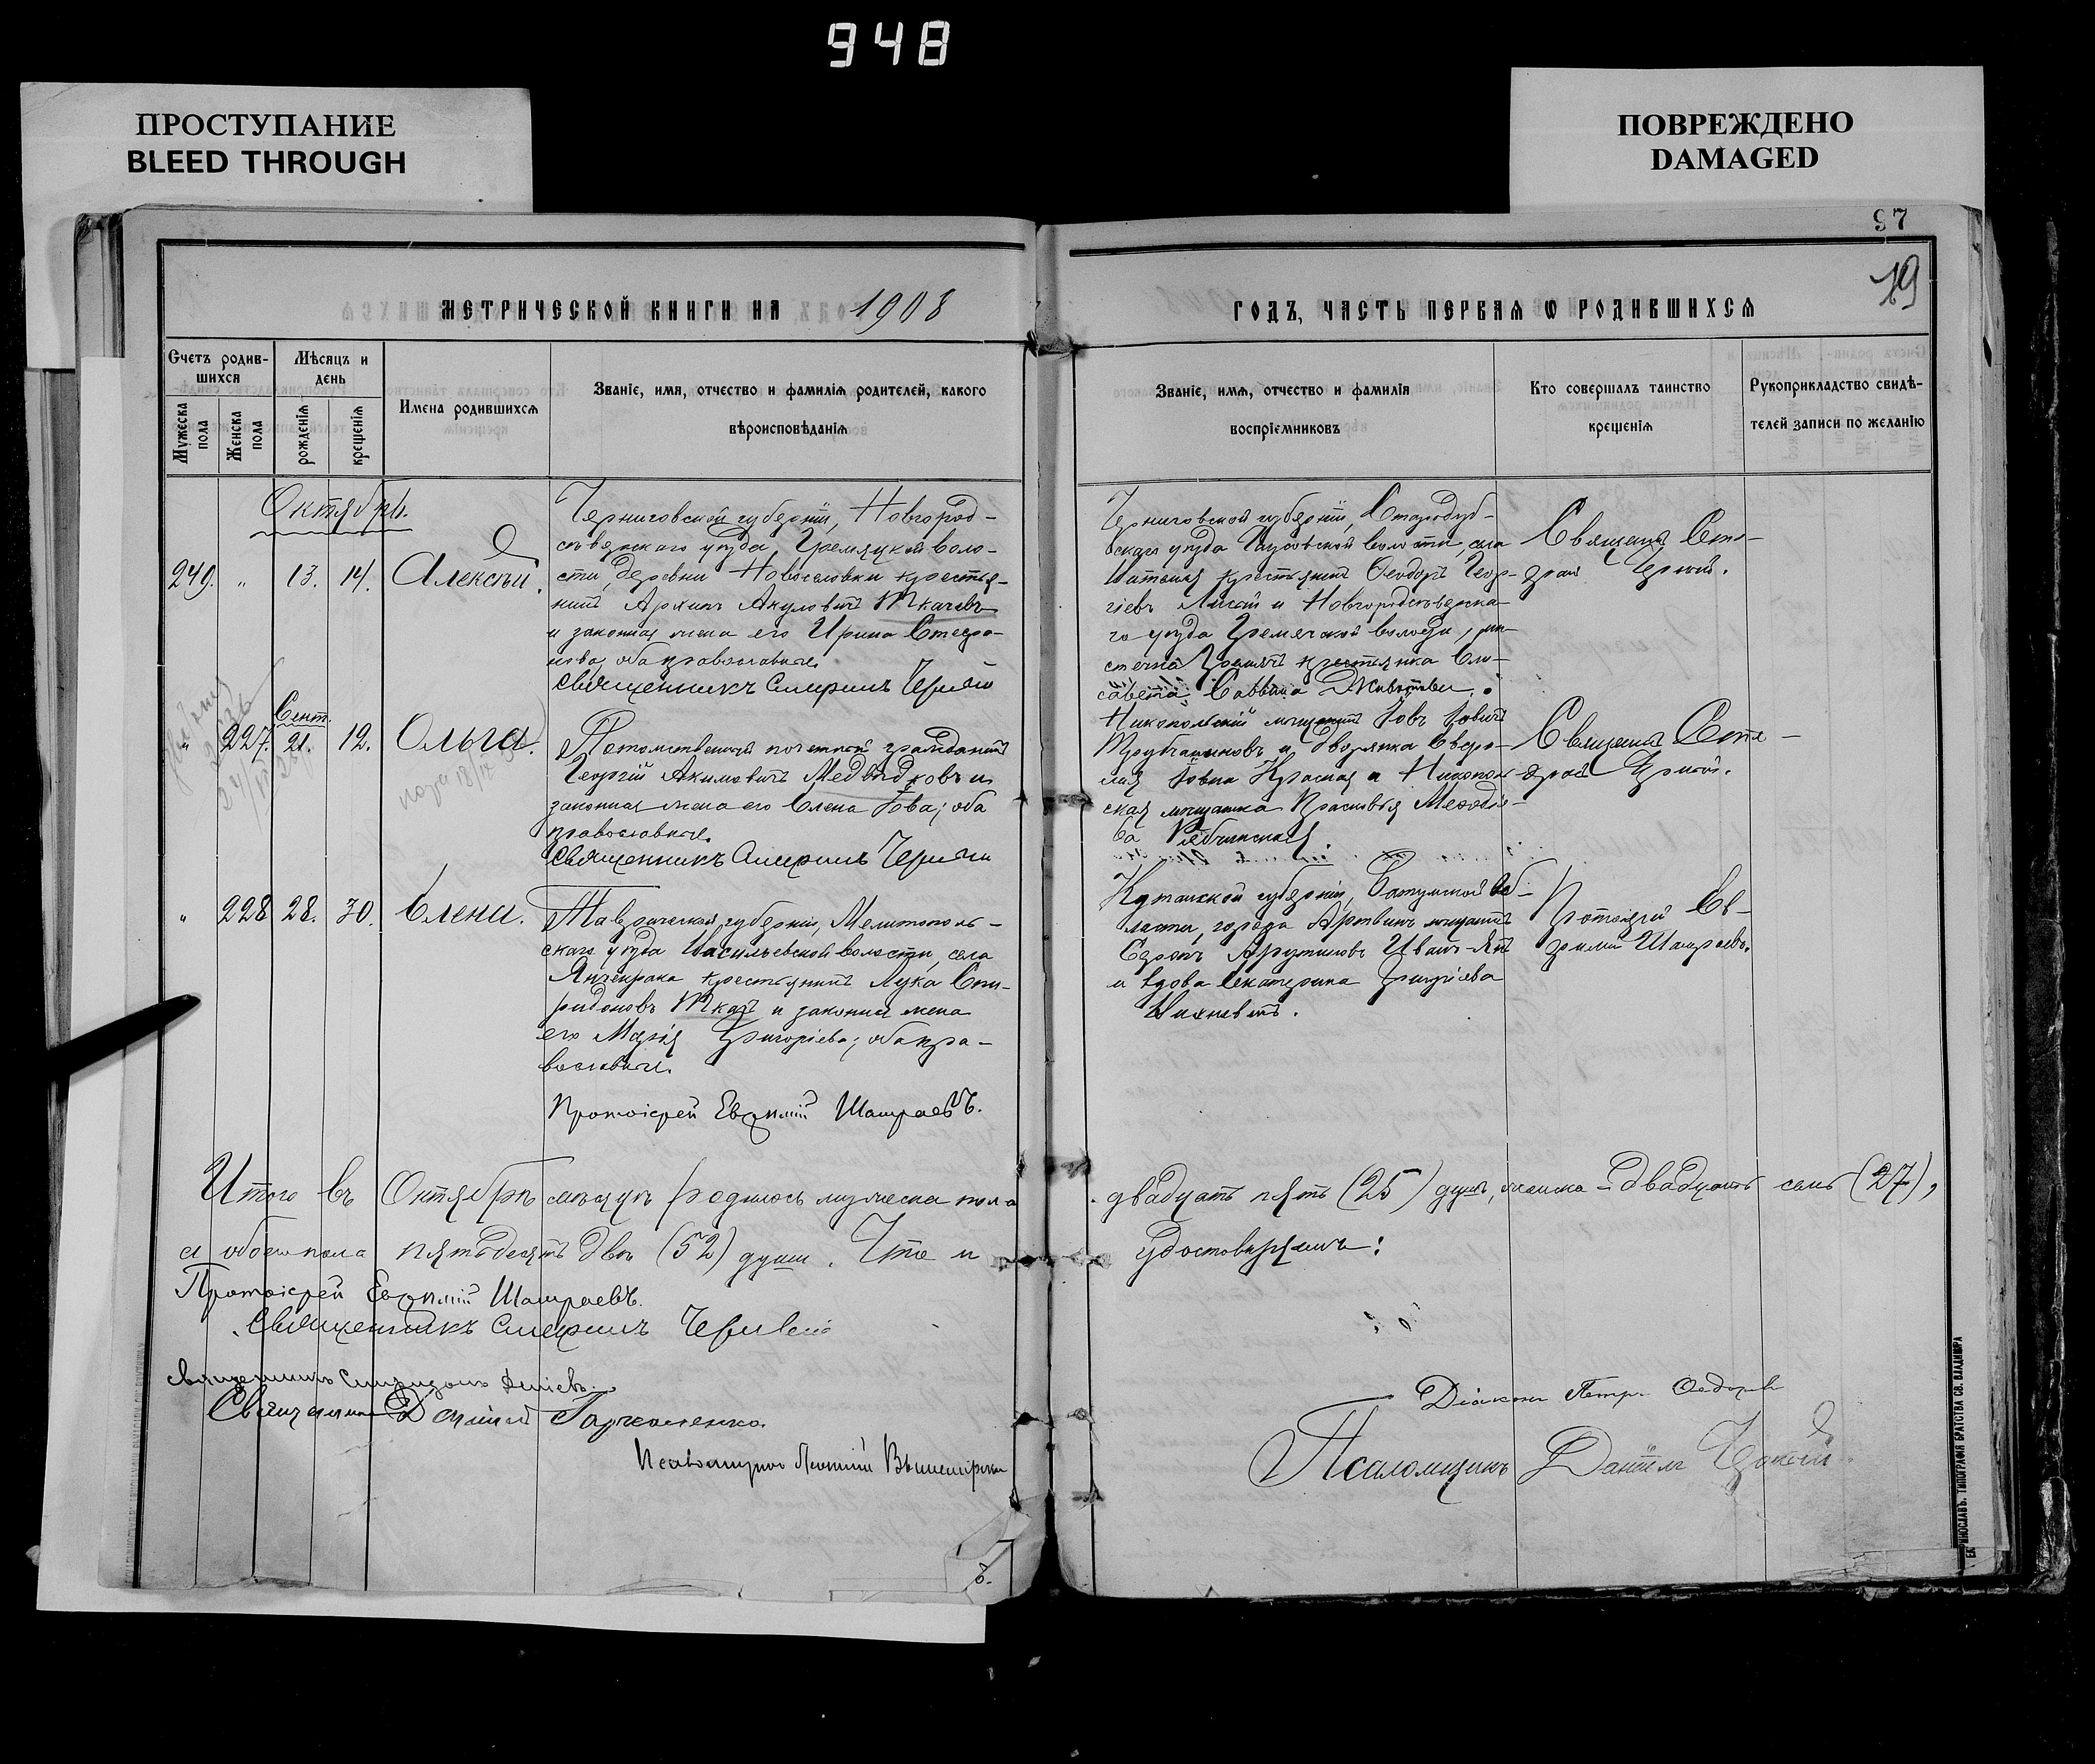 948
ПРОСТУПАНИЕ
BLEED THROUGH
ПОВРЕЖДЕНО
DAMAGED
97
19
МЕТРИЧЕСКОЙ КНИГИ НА 1908
ГОДЪ, ЧАСТЬ ПЕРВАЯ Ѡ РОДИВШИХСЯ
Счетъ родив-
шихся
Мужеска пола
Женска пола
Мѣсяцъ и
день
рожденія
крещенія
Имена родившихся
Званіе, имя, отчество и фамилія родителей, какого
вѣроисповѣданія
Званіе, имя, отчество и фамилія
воспріемниковъ
Кто совершалъ таинство
крещенія
Рукоприкладство свидѣ-
телей записи по желанію
Октябрь.
249. " 13. 14. Алексѣй.
Черниговской губерніи, Новгород-
сѣверскаго уѣзда, Гремяцкой воло-
сти, деревни Новоселовки крестья-
нинъ Архипъ Акуловичъ Ткачевъ
и законная жена его Ирина Стефа-
нова, оба православные.
Священникъ Симеонъ
Черниговской губерніи, Стародуб-
скаго уѣзда волости, села
крестьянинъ Ѳеодоръ Геор-
гіевъ и Новгородсѣверска-
го уѣзда Гремячской волости, мѣ-
стечка Гремячъ крестьянка Ели-
савета Саввина
Священ.
" 227. Сент. 21. 12. Ольга.
Потомственный почетный гражданинъ
Георгій Акимовичъ Медвѣдковъ и
законная жена его Елена Іова; оба
православные.
Священникъ Симеонъ
Никопольскій мѣщанинъ Іовъ Іовичъ
и дворянка Евфро-
сія Іовна Красная и Никополь-
ская мѣщанка Прасковья Меѳодіе-
ва Рябчинская.
Священ.
" 228 28. 30. Елена.
Таврической губерніи, Мелитополь-
скаго уѣзда Васильевской волости, села
Янчекрака крестьянинъ Лука Спи-
ридоновъ Ткачъ и законная жена
его Марія Григорьева; оба пра-
вославные.
Протоіерей Евѳимій Шамраевъ.
Кутаиской губерніи, Батумской об-
ласти, города Артвинъ мѣщанинъ
Арутиновъ
и вдова Екатерина Григорьева
Протоіерей Ев-
ѳимій Шамраевъ.
Итого въ Октябрѣ мѣсяцѣ родилось мужеска пола
двадцать пять (25) душъ, женска – двадцать семь (27),
а обоего пола пятьдесятъ двѣ (52) души. Что и
удостовѣряемъ:
Протоіерей Евѳимій Шамраевъ.
Священникъ Симеонъ
Священникъ Спиридонъ
Священникъ
Діаконъ Петръ Ѳедоровъ
Псаломщикъ
Псаломщикъ Даніилъ
ЕКАТЕРИНОСЛАВЪ. ТИПОГРАФІЯ БРАТСТВА СВ. ВЛАДИМІРА